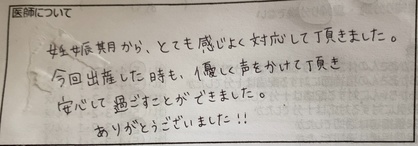 医師について
妊娠期から、とても感じよく対応して頂きました。
今回出産した時も、優しく声をかけて頂き
安心して過ごすことができました。
ありがとうございました!!